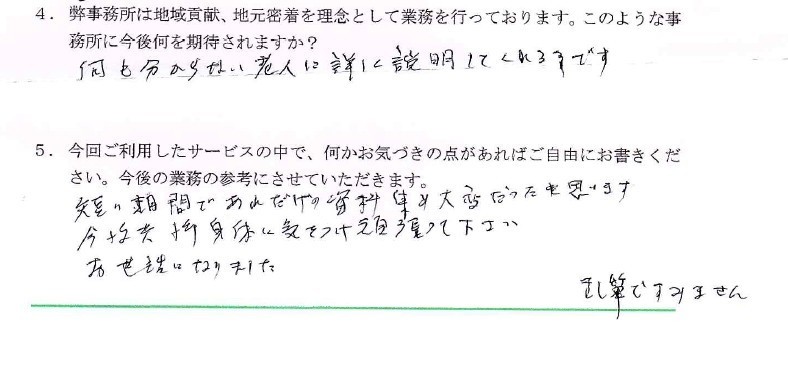 4．弊事務所は地域貢献、地元密着を理念として業務を行っております。このような事
務所に今後何を期待されますか？
何も分からない老人に詳しく説明してくれる事です
5．今回ご利用したサービスの中で、何かお気づきの点があればご自由にお書きくだ
さい。今後の業務の参考にさせていただきます。
短い期間であれだけの資料集め大変だったと思います
今後共 御身体に気をつけ頑張って下さい
お世話になりました
乱筆ですみません